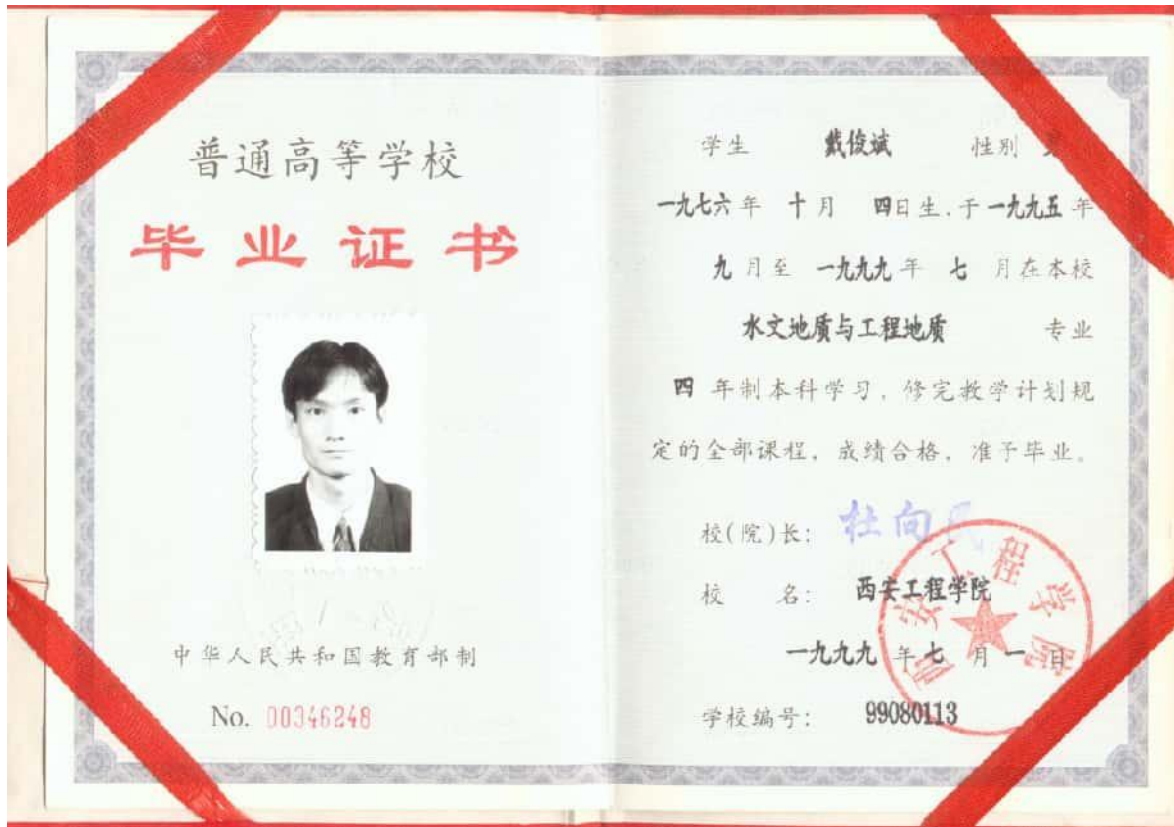 普通高等学校
毕业证书
中华人民共和国教育部制
No. 00346248
学生 戴俊斌 性别
一九七六年 十月 四日生,于一九九五年
九月至 一九九九年 七 月在本校
水文地质与工程地质 专业
四 年制本科学习,修完教学计划规
定的全部课程,成绩合格,准予毕业。
校(院)长: 杜向民
校 名: 西安工程学院
西安工程学院
一九九九年七月一日
学校编号: 99080113